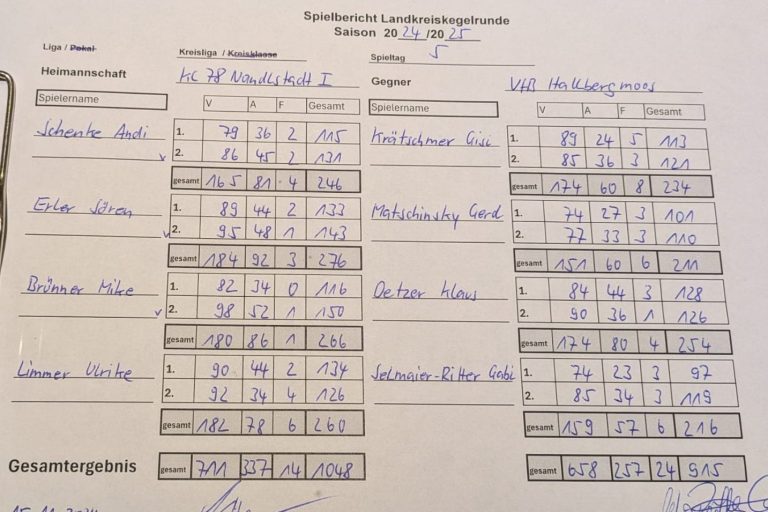 Spielbericht Landkreiskegelrunde
Saison 2024/2025
Liga / Pokal Kreisliga / Kreisklasse Spieltag 5
Heimannschaft KC 78 Nandlstadt I Gegner VfB Hallbergmoos
Spielername V A F Gesamt Spielername V A F Gesamt
Schenke Andi 1. 79 36 2 115 Krätschmer Gisi 1. 89 24 5 113
2. 86 45 2 131 2. 85 36 3 121
gesamt 165 81 4 246 gesamt 174 60 8 234
Erler Sören 1. 89 44 2 133 Matschinsky Gerd 1. 74 27 3 101
2. 95 48 1 143 2. 77 33 3 110
gesamt 184 92 3 276 gesamt 151 60 6 211
Brünner Mike 1. 82 34 0 116 Oetzer Klaus 1. 84 44 3 128
2. 98 52 1 150 2. 90 36 1 126
gesamt 180 86 1 266 gesamt 174 80 4 254
Limmer Ulrike 1. 90 44 2 134 Selmaier-Ritter Gabi 1. 74 23 3 97
2. 92 34 4 126 2. 85 34 3 119
gesamt 182 78 6 260 gesamt 159 57 6 216
Gesamtergebnis gesamt 711 337 14 1048 gesamt 658 257 24 915